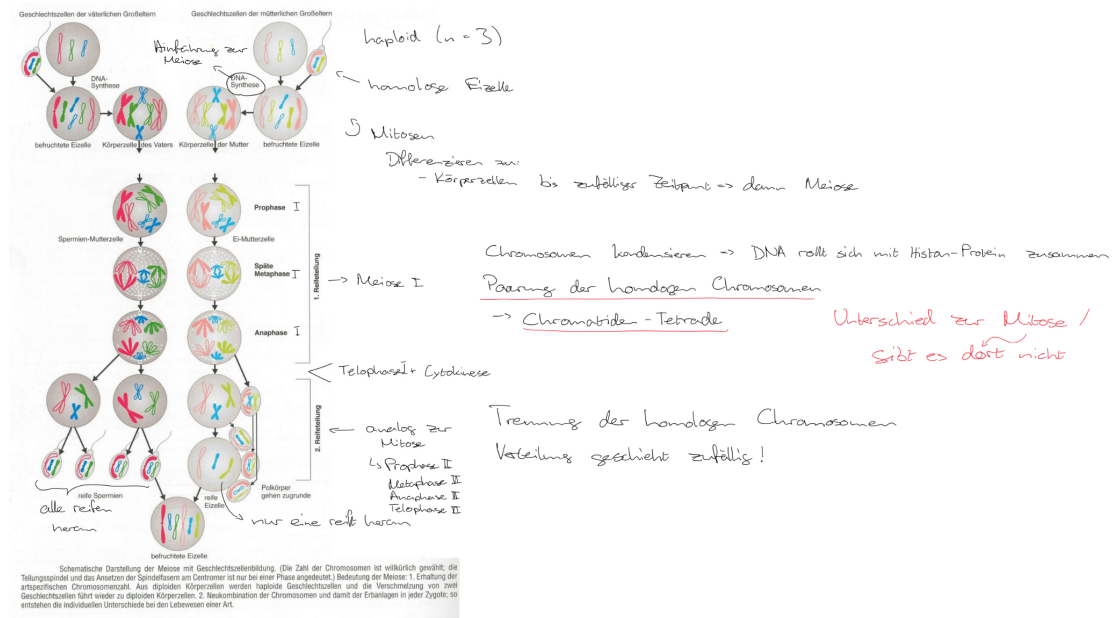 Geschlechtszellen der väterlichen Großeltern
Geschlechtszellen der mütterlichen Großeltern
haploid (n = 3)
Einführung zur
Meiose
DNA-
Synthese
DNA-
Synthese
homologe Eizelle
befruchtete Eizelle
Körperzelle des Vaters
Körperzelle der Mutter
befruchtete Eizelle
Mitosen
Differenzieren zu:
- Körperzellen bis zufälliger Zeitpunt => dann Meiose
Prophase I
Spermien-Mutterzelle
Ei-Mutterzelle
Späte
Metaphase I
Anaphase I
1. Reifeteilung
→ Meiose I
Chromosomen kondensieren -> DNA rollt sich mit Histon-Protein zusammen
Paarung der homologen Chromosomen
-> Chromatiden-Tetrade
Unterschied zur Mitose /
gibt es dort nicht
Telophase I + Cytokinese
2. Reifeteilung
← analog zur
Mitose
↳ Prophase II
Metaphase II
Anaphase II
Telophase II
Trennung der homologen Chromosomen
Verteilung geschieht zufällig!
reife Spermien
alle reifen
heran
reife
Eizelle
Polkörper
gehen zugrunde
nur eine reift heran
befruchtete Eizelle
Schematische Darstellung der Meiose mit Geschlechtszellenbildung. (Die Zahl der Chromosomen ist willkürlich gewählt; die
Teilungsspindel und das Ansetzen der Spindelfasern am Centromer ist nur bei einer Phase angedeutet.) Bedeutung der Meiose: 1. Erhaltung der
artspezifischen Chromosomenzahl. Aus diploiden Körperzellen werden haploide Geschlechtszellen und die Verschmelzung von zwei
Geschlechtszellen führt wieder zu diploiden Körperzellen. 2. Neukombination der Chromosomen und damit der Erbanlagen in jeder Zygote; so
entstehen die individuellen Unterschiede bei den Lebewesen einer Art.